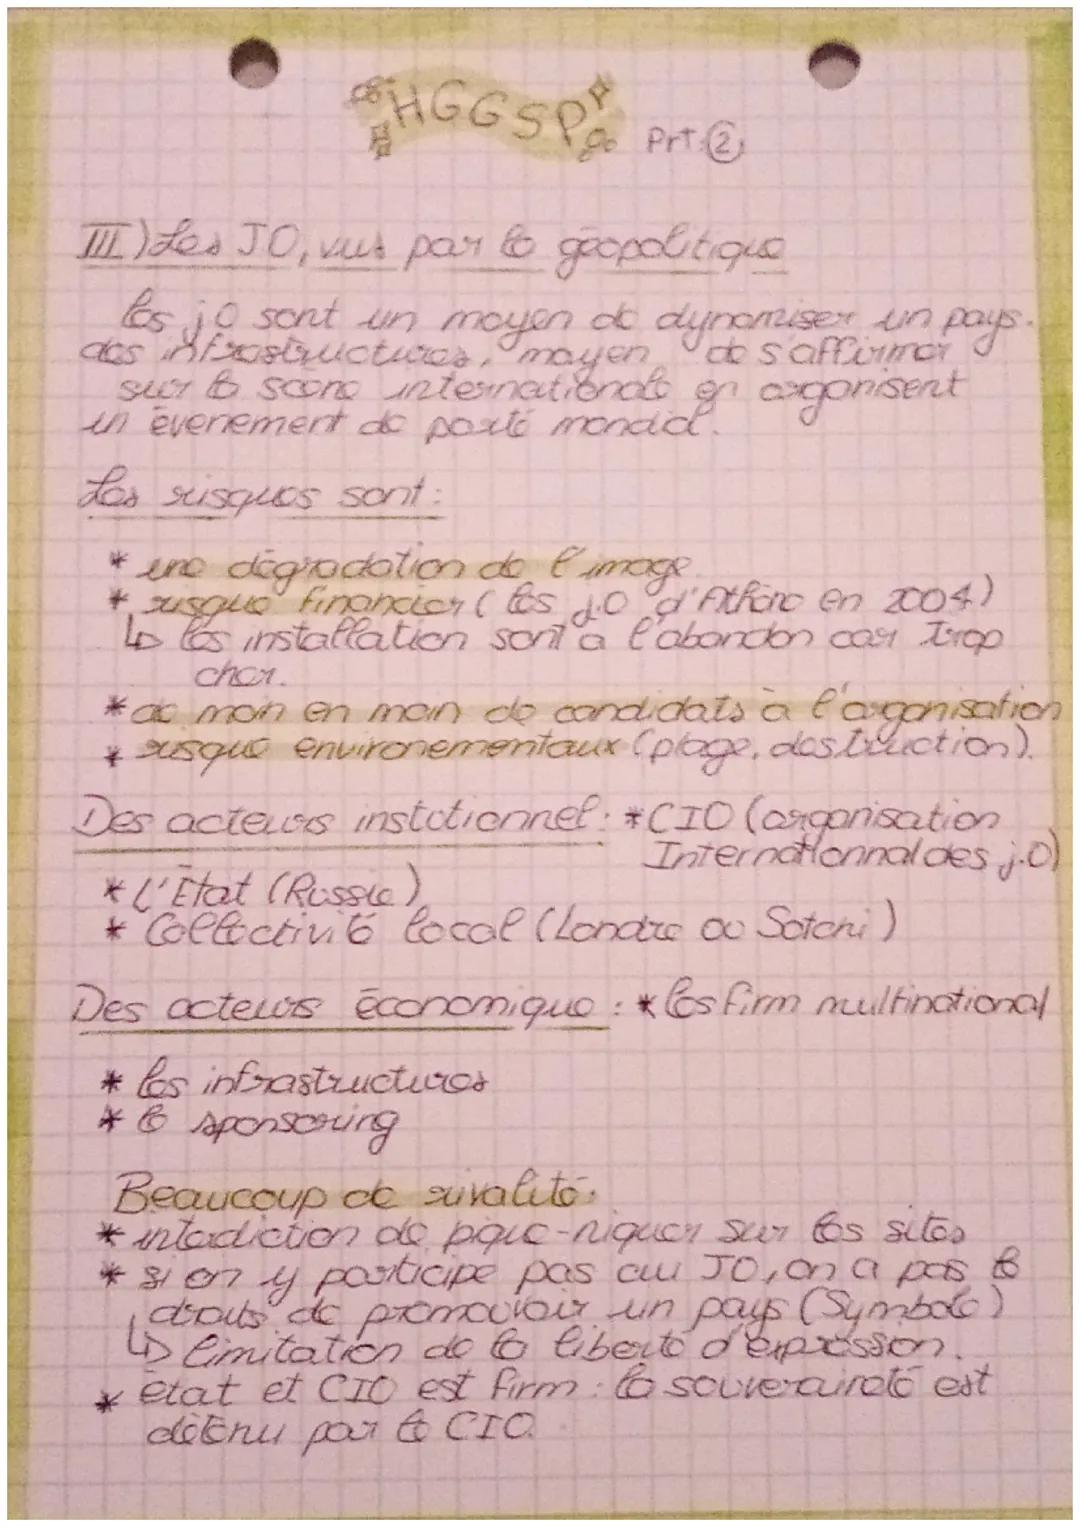 HGGSP Prt:②
III) Les JO, vus par la géopolitique
les jO sont un moyen de dynamiser un pays.
des infrastructures, moyen de s'affirmer
sur la scène internationale en organisent
un évenement de porté mondial.
Les risques sont :
* une dégradation de l'image.
* risque financier (les j.O d'Athène en 2004)
↳ les installation sont a l'abandon car trop
cher.
* de moin en moin de candidats à l'organisation
* risque environementaux (plage, destruction).
Des acteurs instutionnel : * CIO (organisation
Internationnal des j.O)
* L'État (Russie)
* Collectivité local (Londre ou Sotchi)
Des acteurs économique : * les firm multinational
* les infrastructures
* le sponsoring
Beaucoup de rivalité :
* interdiction de pique-niquer sur les sites
* si on y participe pas au JO, on a pas le
droits de promouvoir un pays (Symbole)
↳ limitation de la liberté d'expression.
* état et CIO est firm : la souveraineté est
détenu par le CIO.